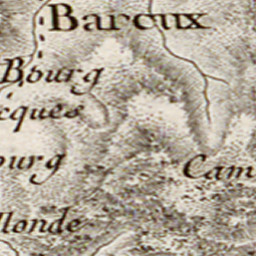 Barcux
Bourg
cques
ourg
Cam
londe